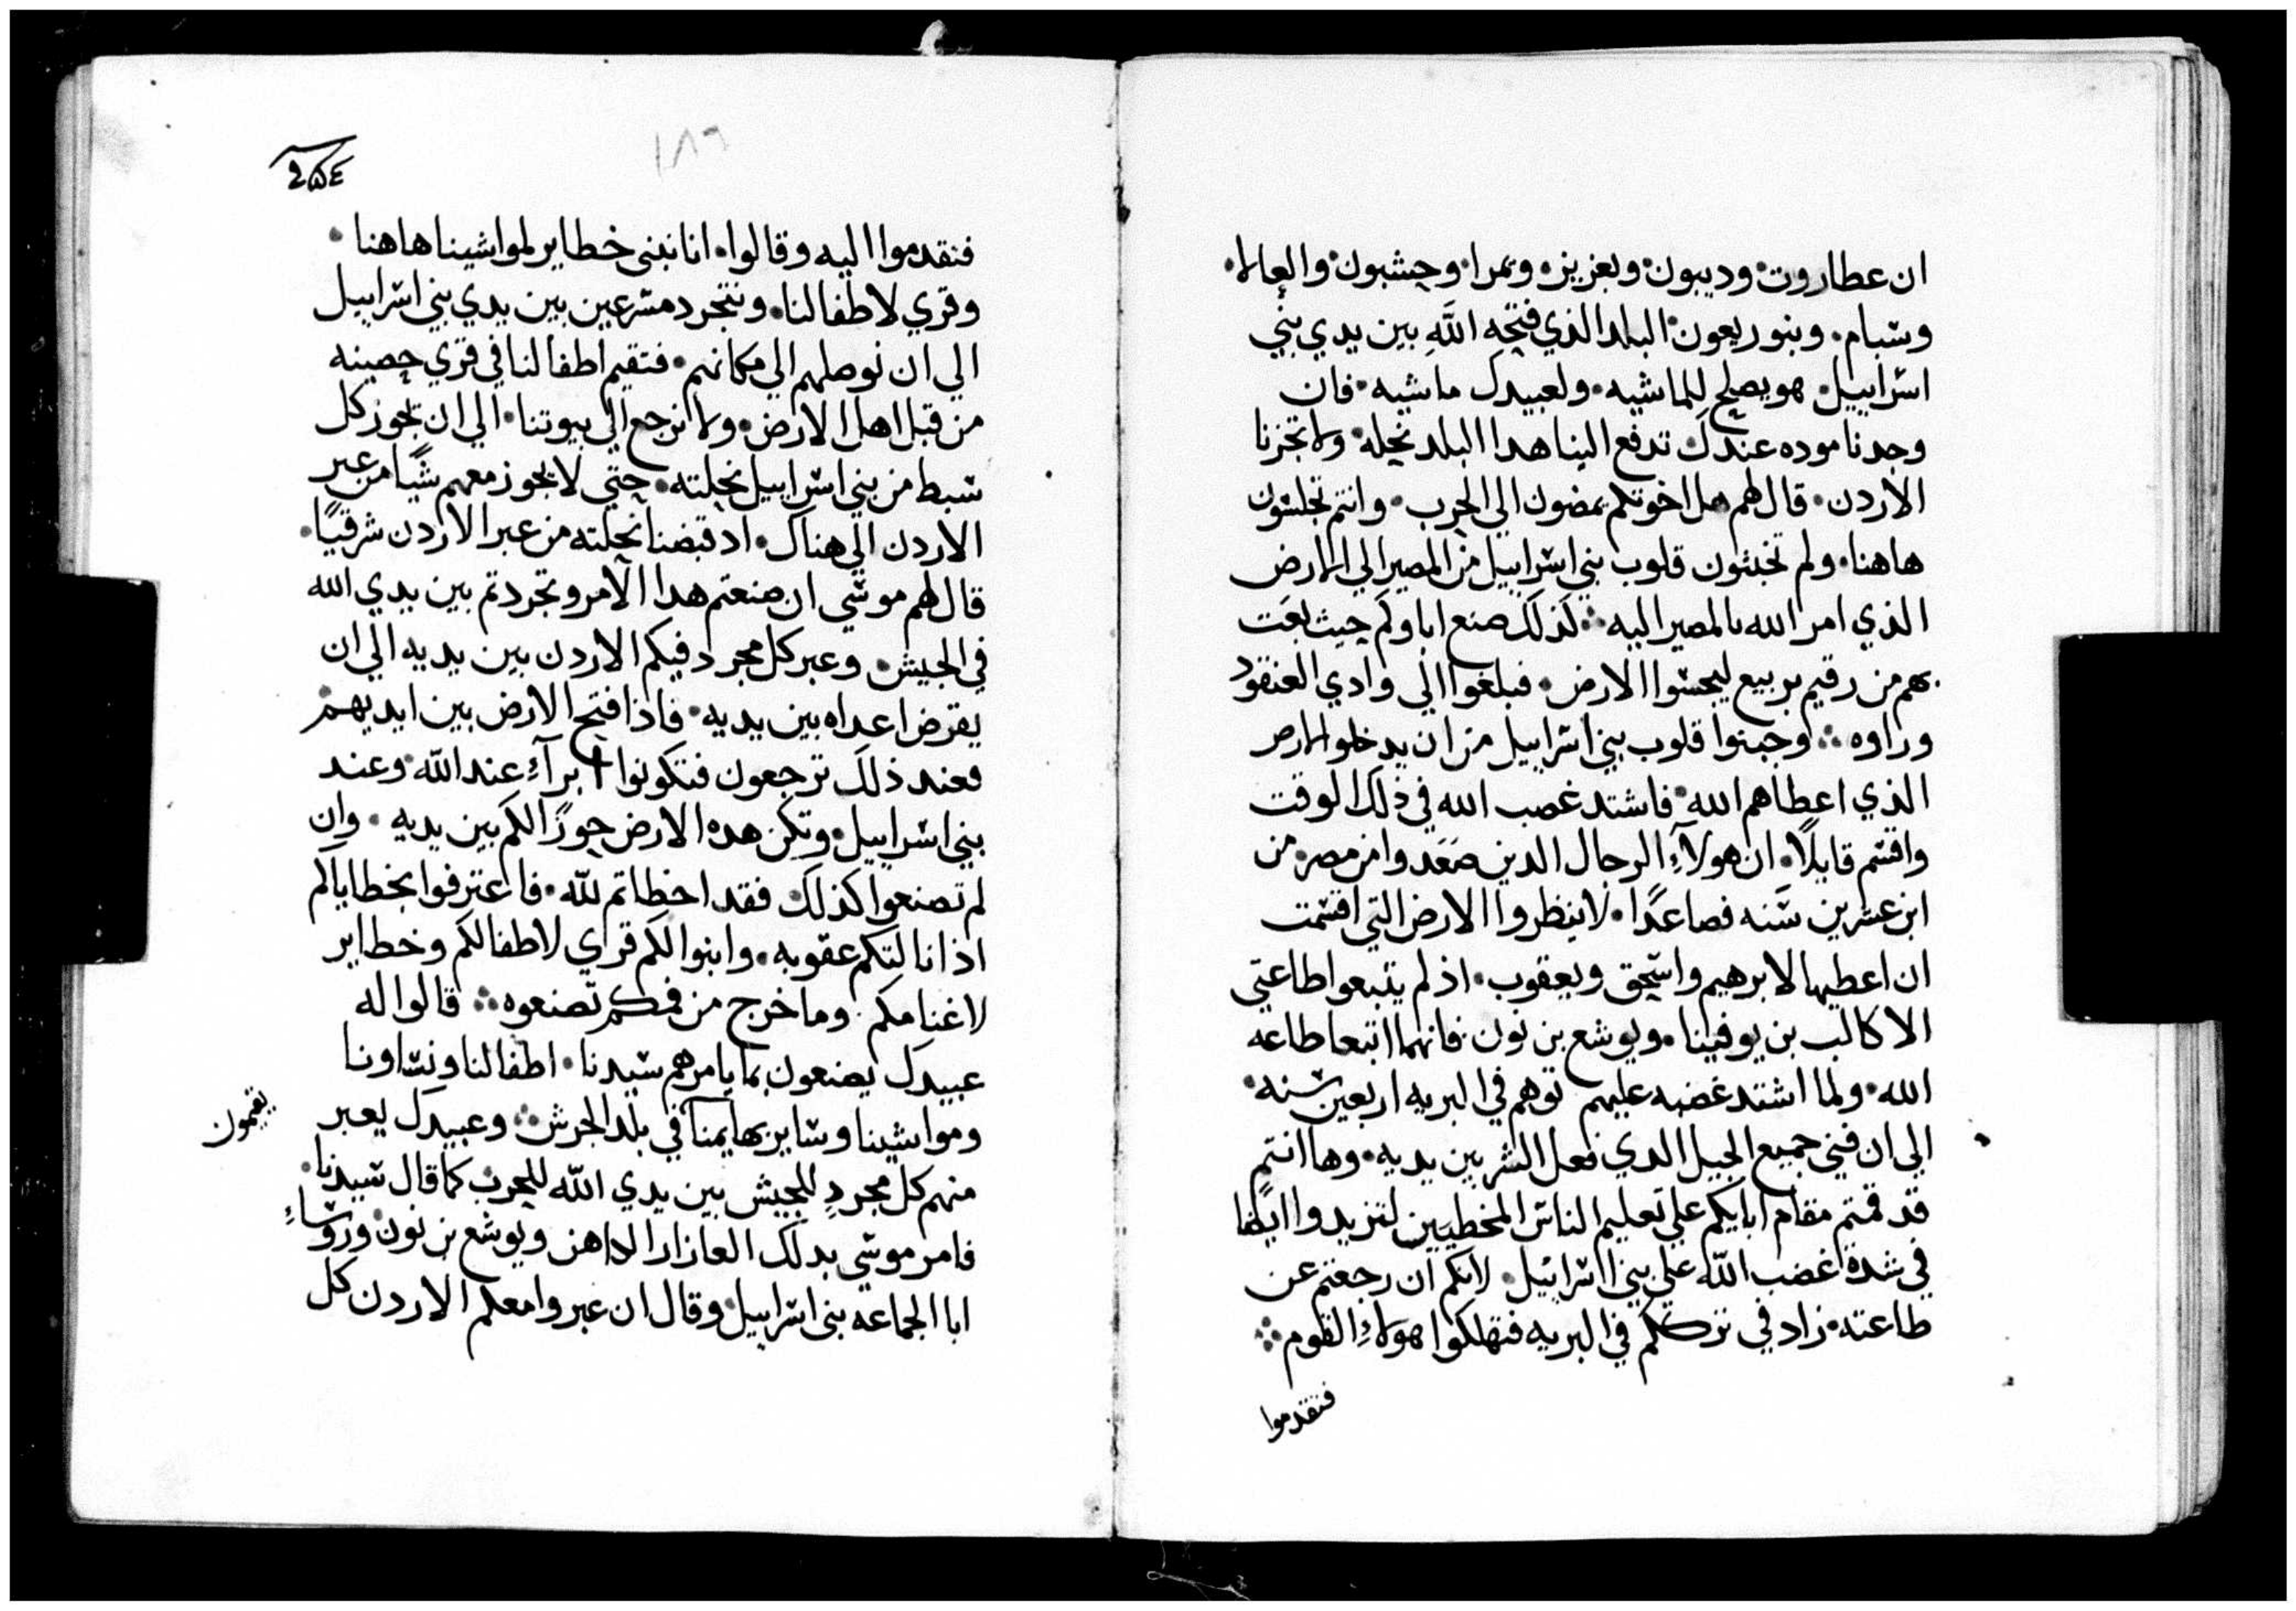 ان عطاروت وديبون ويعزيز ونمرا وحشبون والعالا
وشبام وبنو ريعون البلد الذي فتحه الله بين يدي بني
اسراييل هو يصلح للماشيه ولعبيدك ماشيه فان
وجدنا موده عندك تدفع الينا هدا البلد نحله ولا تجزنا
الاردن قال لهم هل اخوتكم يمضون الي الحرب وانتم تجلسون
هاهنا ولم تخبثون قلوب بني اسراييل من المصير الي الارض
الذي امر الله بالمصير اليه كذلك صنع اباوكم حيث بعت
بهم من رقيم بربيع ليجسوا الارض فبلغوا الي وادي العنقود
وراوه وجبنوا قلوب بني اسراييل من ان يدخلوا الارض
الذي اعطاهم الله فاشتد غصب الله في ذلك الوقت
واقسم قايلًا ان هولاءِ الرجال الدين صَعَدوا من مصر من
ابن عشرين سنه فصاعدًا لا ينظروا الارض التي اقسمت
ان اعطيها لابرهيم واسحق ويعقوب اذ لم يتبعوا طاعتي
الا كالب بن يوفينا ويوشع بن نون فانهما اتبعا طاعه
الله ولما اشتد غضبه عليهم توهم في البريه اربعين سنه
الي ان فني جميع الجيل الدي فعل الشر بين يديه وها انتم
قد قمتم مقام ابايكم علي تعليم الناس المخطيين لتزيدوا ايضا
في شدة غضب الله علي بني اسرائيل لانكم ان رجعتم عن
طاعته زاد في ترككم في البريه فتهلكوا هولاءِ القوم
فتقدموا
١٨٦
فتقدموا اليه وقالوا انا نبني خطاير لمواشينا هاهنا
وقري لاطفالنا ونتجرد مسرعين بين يدي بني اسراييل
الي ان نوصلهم الي مكانهم فتقيم اطفالنا في قري حصينه
من قبل اهل الارض ولا نرجع الي بيوتنا الي ان تجوز كل
سبط من بني اسراييل نحلته حتي لا يجوز معهم شيًا من عبر
الاردن الي هناك اد قبضنا نحلته من عبر الاردن شرقيًا
قال لهم موسي ان صنعتم هدا الامر وتجردتم بين يدي الله
في الجيش وعبر كل مجرد فيكم الاردن بين يديه الي ان
يقرض اعداه بين يديه فاذا فتح الارض بين ايديهم
فعند ذلك ترجعون فتكونوا ابرآءِ عند الله وعند
بني اسراييل وتكن هده الارض حوزًا لكم بين يديه وان
لم تصنعوا كذلك فقد اخطاتم لله فاعترفوا بخطاياكم
اذا نالتكم عقوبه وابنوا لكم قراي لاطفالكم وخطاير
لاغنامكم وما خرج من فمكم تصنعوه قالوا له
عبيدك يصنعون بما يامرهم سيدنا اطفالنا ونساونا
ومواشينا وساير بهايمنا في بلد الجرش وعبيدك يعبر
يقيمون
منهم كل مجردٍ للجيش بين يدي الله للحرب كما قال سيدنا
فامر موسي بدلك العازار الداهن ويوشع بن نون وروساءِ
ابا الجماعه بني اسراييل وقال ان عبروا معكم الاردن كل